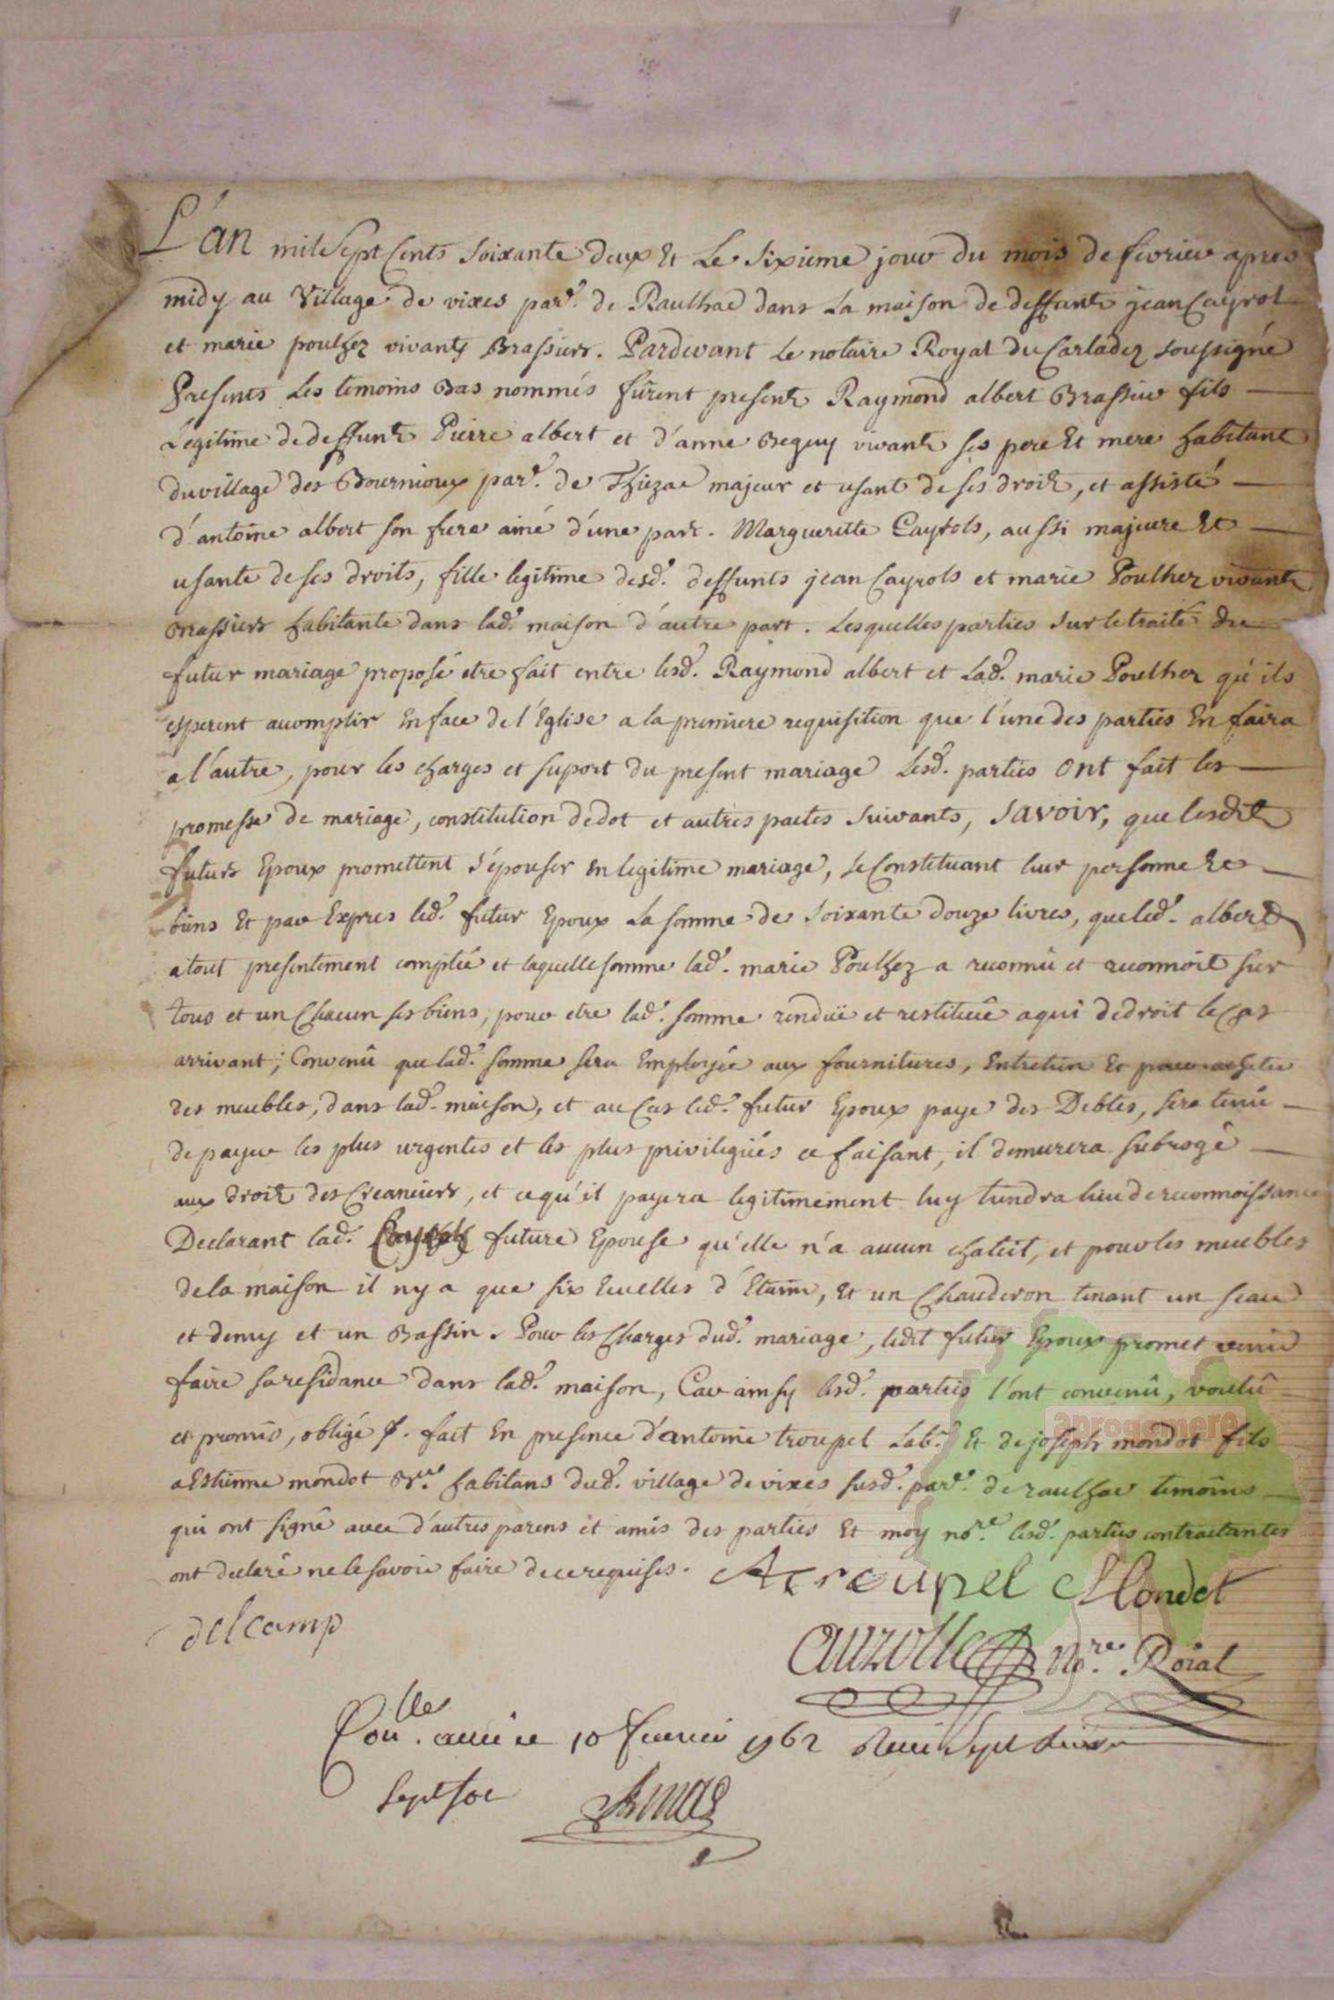 L'an mil sept Cents soixante deux et Le sixieme jour du mois de fevrier apres
midy au Village de vixes parse. de Raulhac dans La maison de deffunts jean Cayrol
et marie poulhez vivants Brassiers. Pardevant Le notaire Royal du Carladez soussigné
Presents Les temoins Bas nommés fûrent presents Raymond albert Brassier fils
Legitime de deffunt Pierre albert et d'anne Beguy vivante ses pere Et mere habitant
du village des Bournioux parse. de Thiezac majeur et usant de ses droits, et assisté
d'antoine albert son frere ainé d'une part. Margueritte Cayrols, aussi majeure Et
usante de ses droits, fille legitime desd. deffunts jean Cayrols et marie Poulhez vivants
Brassiers habitante dans lad. maison d'autre part. Lesquelles parties sur le traité du
futur mariage proposé etre fait entre lesd. Raymond albert et Lad. marie Poulhez qu'ils
esperent accomplir En face de l'Eglise a la premiere requisition que l'une des parties En faira
a l'autre, pour les charges et suport du present mariage Lesd. parties ont fait les
promesse de mariage, constitution de dot et autres pactes suivants, savoir, que lesdits
futurs Epoux promettent s'épouser en legitime mariage, se Constituant leur personne Et
biens Et par Expres led. futur Epoux La somme de soixante douze livres, que led. albert
a tout presentement comptée et laquelle somme lad. marie Poulhez a reconnû et reconnoit sur
tous et un Chacun ses biens, pour etre lad. somme renduë et restituée a qui de droit le Cas
arrivant; Convenû que lad. somme sera Employée aux fournitures, Entretien Et pour acheter
des meubles, dans lad. maison, et au Cas led. futur Epoux paye des Debtes, sera tenû
de payer les plus urgentes et les plus privilegiées ce faisant, il demeurera subrogé
aux droits des Creanciers, et ce qu'il payera legitimement luy tiendra lieu de reconnoissance
Declarant lad. Cayrols future Epouse qu'elle n'a aucun chatêt, et pour les meubles
de la maison il n'y a que six Ecuelles d'Etaim, Et un Chauderon tenant un seau
et demy et un Bassin. Pour les Charges dud. mariage, ledit futur Epoux promet venir
faire sa residance dans lad. maison, Car ainsy lesd. parties l'ont convenû, voulû
et promis, obligé &. fait En presence d'antoine troupel Labr. Et de joseph mondot fils
a Estienne mondot Br. habitans dud. village de vixes susd. parse. de raulhac temoins
qui ont signé avec d'autres parens et amis des parties Et moy nore. lesd. parties contractantes
ont declaré ne le savoir faire de ce requises. Atroupel Mondot
delcamp
auzolle nore. Roial
Conlle. a 10 fevrier 1762 Receu sept livres
sept sols
aprogemere